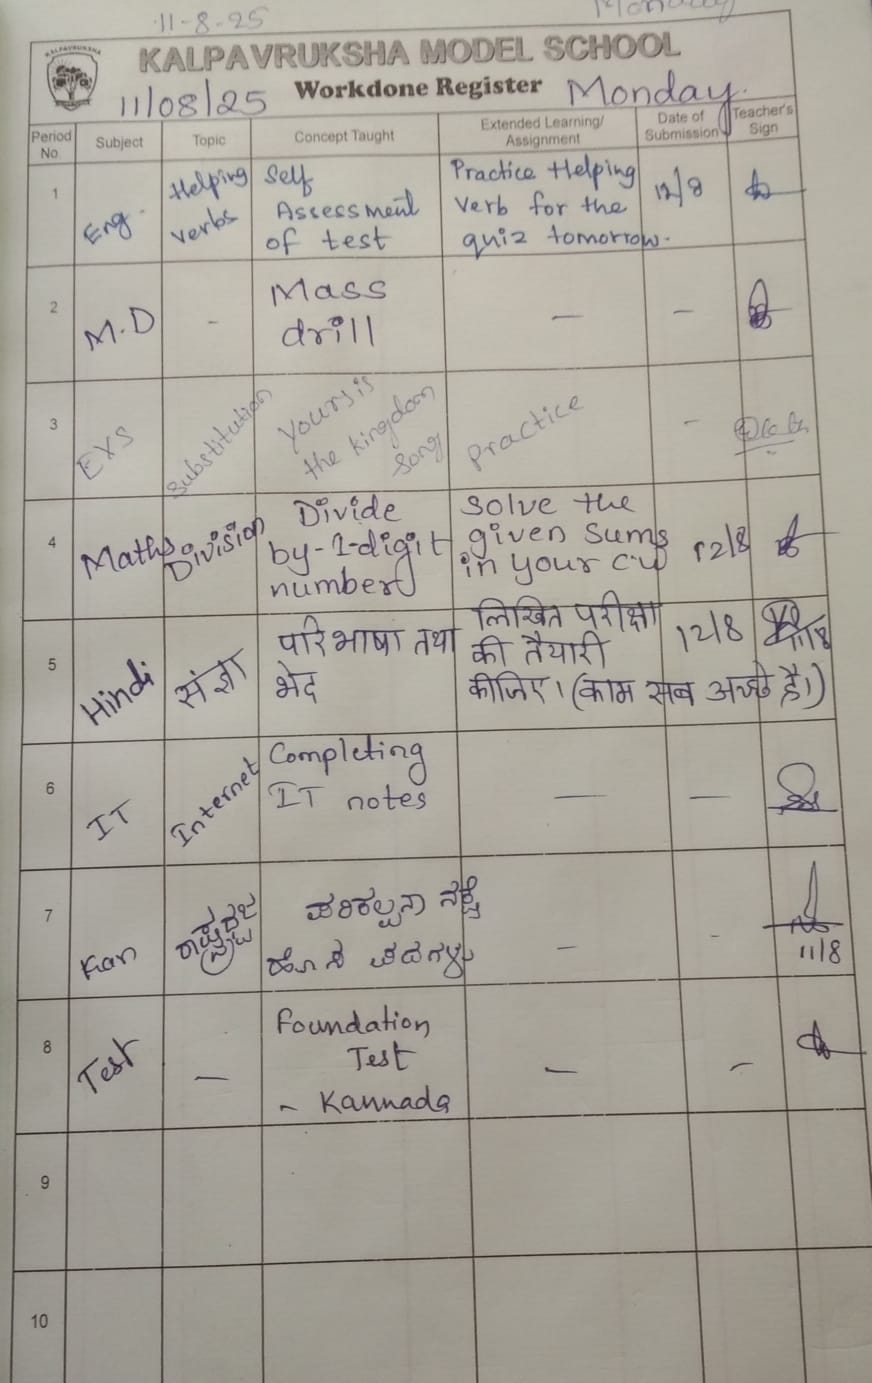 11-8-25 Monday
KALPAVRUKSHA
KALPAVRUKSHA MODEL SCHOOL
11/08/25 Workdone Register Monday.
Period No. Subject Topic Concept Taught Extended Learning/ Assignment Date of Submission Teacher's Sign
1 Eng. Helping verbs Self Assessment of test Practice Helping verb for the quiz tomorrow. 12/8
2 M.D - Mass drill — -
3 EVS Substitution Yours is the kingdom song practice -
4 Maths Division Divide by-1-digit number Solve the given sums in your cw 12/8
5 Hindi संज्ञा परिभाषा तथा भेद लिखित परीक्षा की तैयारी कीजिए। (काम सब अच्छे है।) 12/8 11/8
6 IT Internet Completing IT notes — —
7 Kan ರಾಷ್ಟ್ರಧ್ವಜ ಪರಿಕಲ್ಪನಾ ನಕ್ಷೆ ಹೊಸ ಪದಗಳು - - 11/8
8 Test — Foundation Test - Kannada — -
9
10